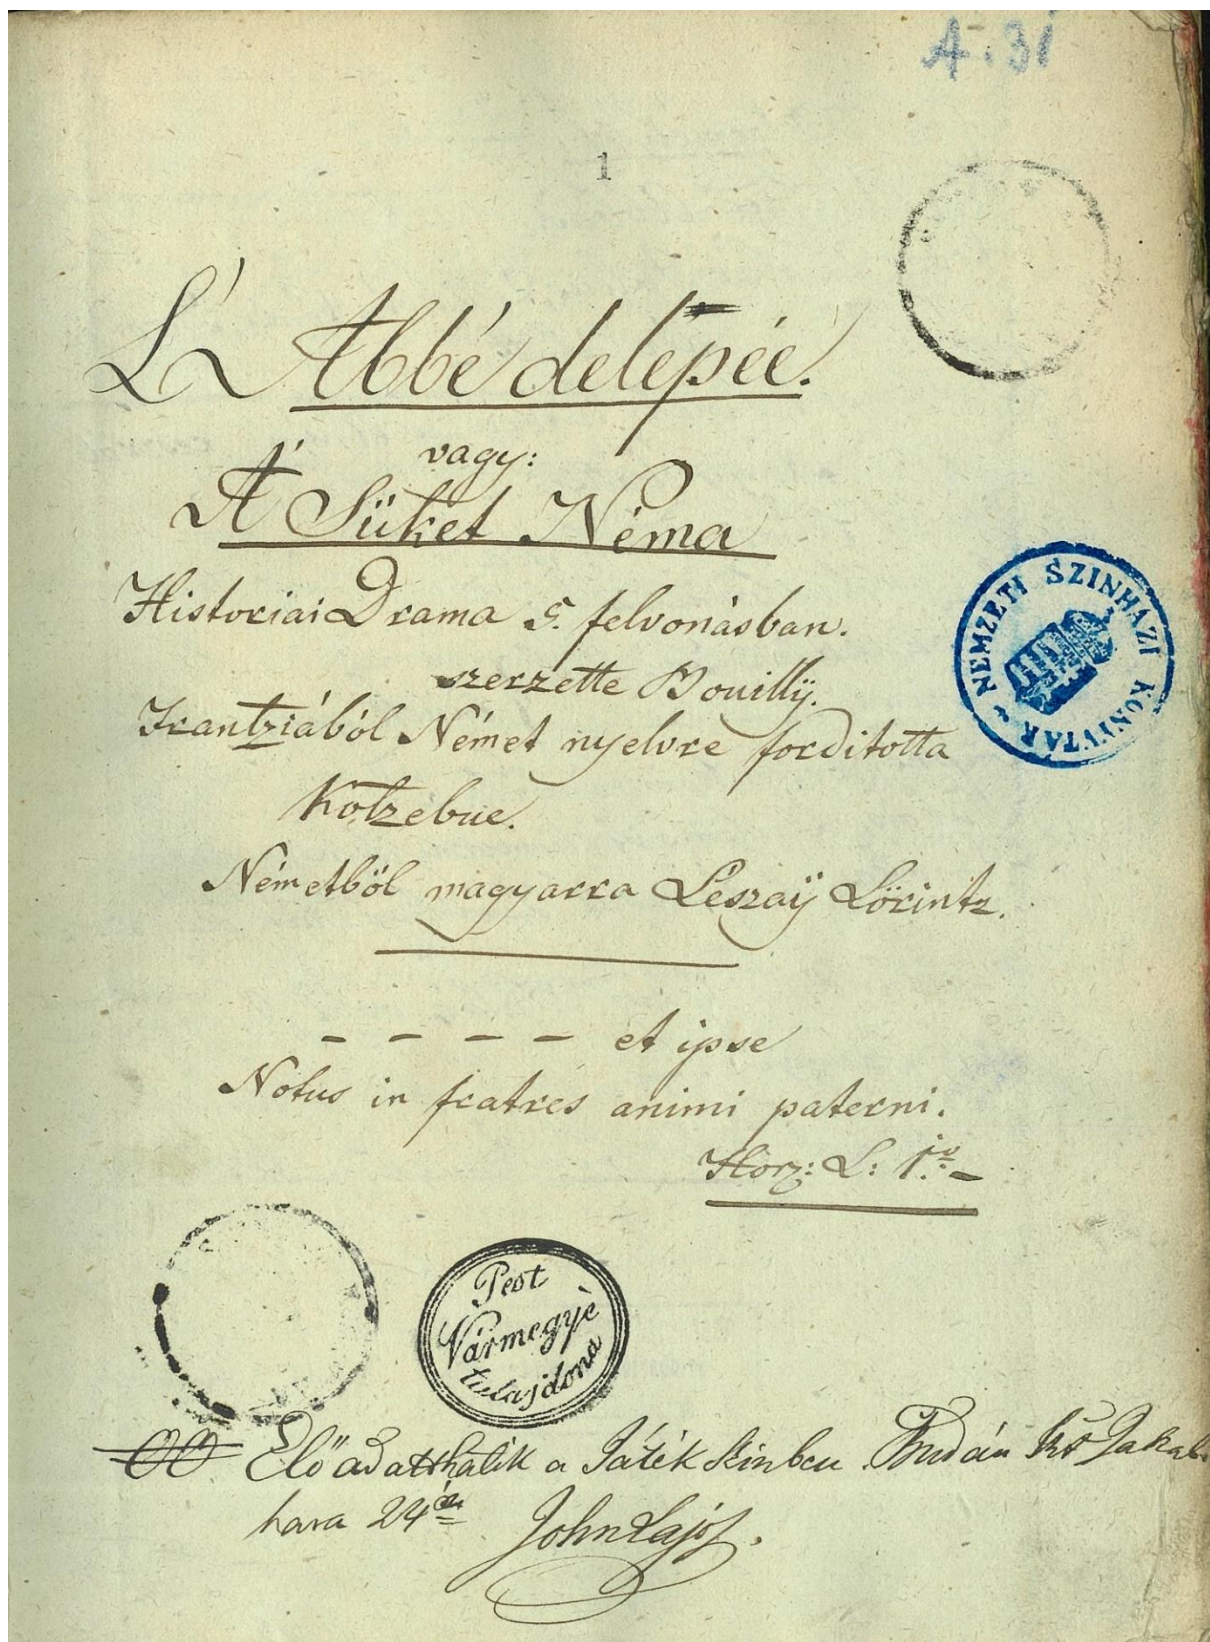 A. 31
1
L'Abbé delepée.
vagy:
A' Süket Néma
Historiai Drama 5. felvonásban.
szerzette Bouillÿ.
Frantziából Német nyelvre forditotta
Kotzebue.
Németböl magyarra Leszaÿ Lörintz.
– – – – et ipse
Notus in fratres animi paterni.
Horz: L: 1.
NEMZETI SZINHÁZI KÖNYVTÁR
Pest
Vármegyè
tulajdona
Előadatthatik a Játék Szinben Budán
hava 24
John Lajos.